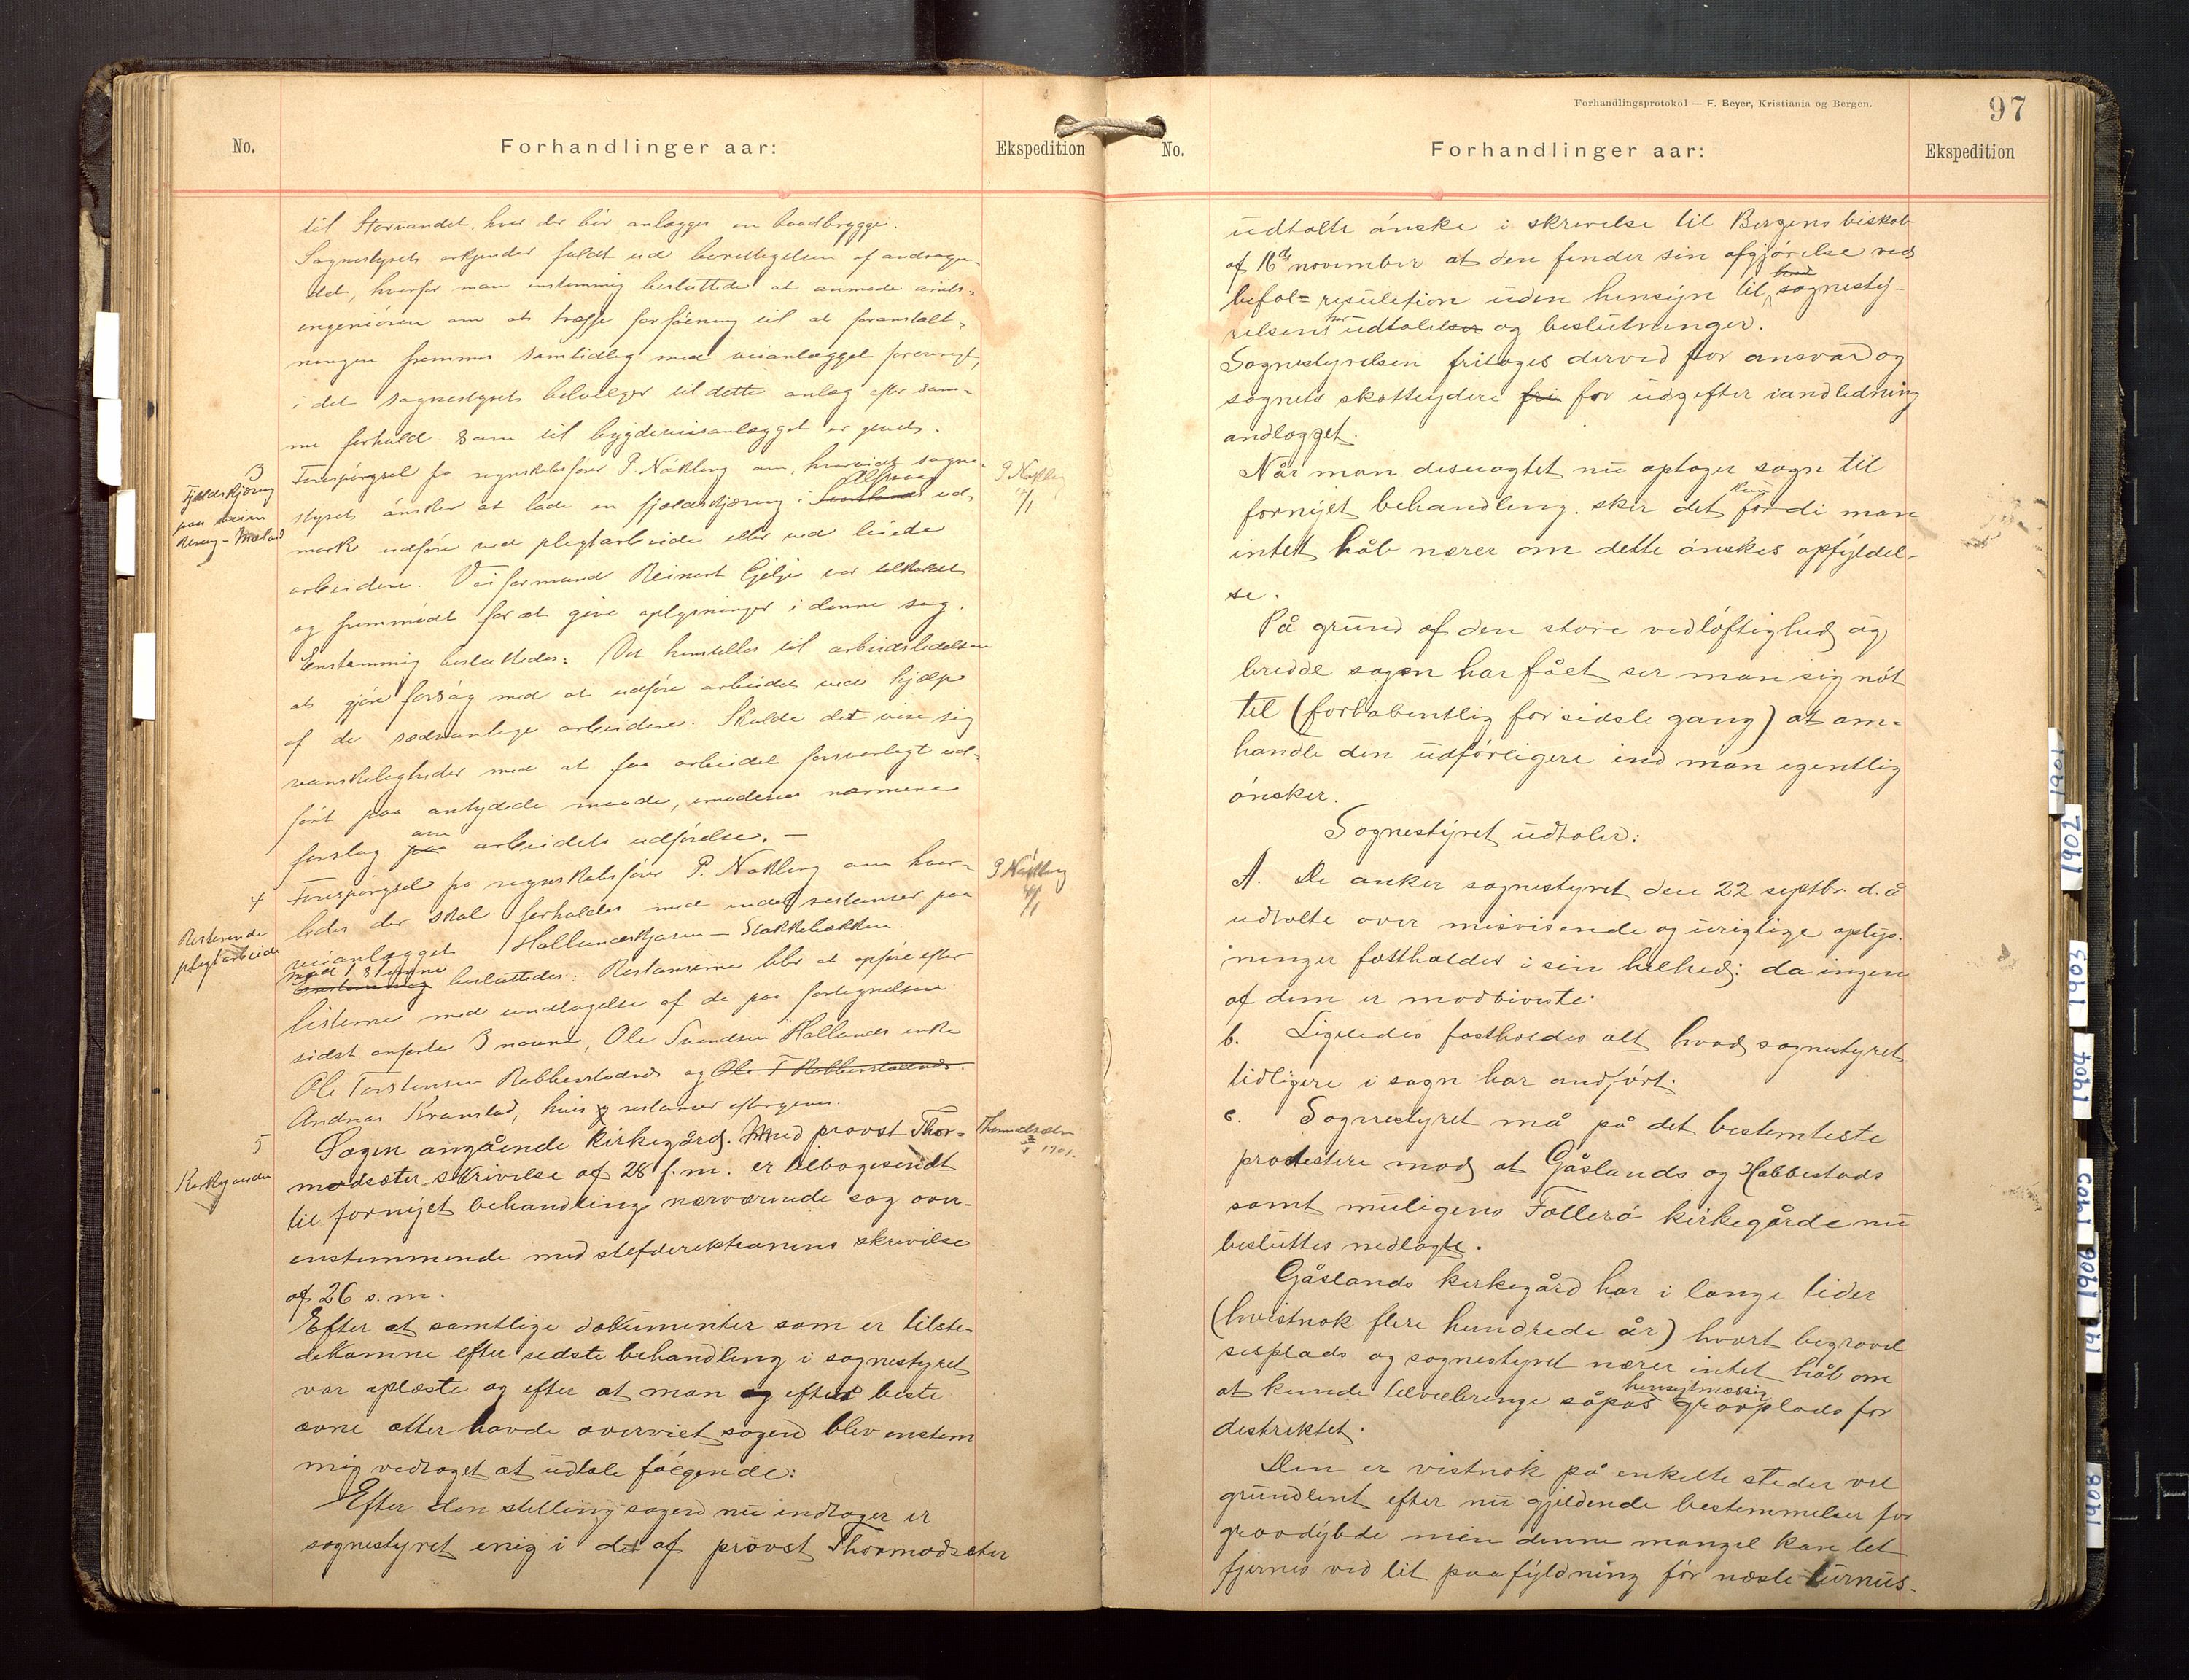 No.
Forhandlinger aar:
Ekspedition
til Storvandet, hvor der bør anlægges en baadbrygge.
Sognestyret erkjender fuldt ud berettigelsen af andragen-
det, hvorfor man enstemmig besluttede at anmode amts-
ingeniøren om at træffe forføining til at foranstalt-
ningen fremmes samtidlig med veianlægget forøvrigt,
i det sognestyret bevilger til dette anlæg efter sam-
me forhold som til bygdeveisanlægget er givet.
3
Fjeldskjæring
paa veien
Forespørgsel fra regnskabsfører P. Nökling om, hvorvidt sogne-
styret ønsker at lade en fjeldskjæring i ud-
mark udføre ved pligtarbeide eller ved leiede
arbeidere. Veiformand Reinert Gjelje var tilkaldt
og fremmødt for at give oplysninger i denne sag.
Enstemmig besluttedes: Det henstilles til arbeidsledelsen
at gjøre forsøg med at udføre arbeidet ved hjælp
af de sædvanlige arbeidere. Skulde det vise sig
vanskeligheder med at faa arbeidet forsvarligt ud-
ført paa antydede maade, imødesees nærmere
forslag paa om arbeidets udførelse. —
P Nökling
4/1
4
Resterende
pligtarbeide
Forespørgsel fra regnskabsfører P. Nökling om hvor-
ledes der skal forholdes med endel restancer paa
veianlægget – Stokkebækken.
Enstemmig med 1 stemme besluttedes: Restancerne blir at opføre efter
listerne med undtagelse af de paa fortegnelsen
sidst anførte 3 navne, Ole Svendsen Hallands enke
Ole Torstensen Rebbestadnes og Ole T Rebbestadnes.
Andreas Kvamstad, hvis restancer eftergives.
P Nökling
4/1
5
Kirkegaarden
Sagen angående kirkegård. Med provst Thor-
modsæter skrivelse af 28 f.m. er tilbagesendt
til fornyet behandling nærværende sag over-
enstemmende med stiftdirektionens skrivelse
af 26 s.m.
Efter at samtlige dokumenter som er tilste-
dekomne efter sidste behandling i sognestyret
var oplæste og efter at man og efter beste
evne atter havde overviet sagen blev enstem
mig vedtaget at udtale følgende:
Efter den stilling sagen nu indtager er
sognestyret enig i det af provst Thormodsæter
1901.
Forhandlingsprotokol — F. Beyer, Kristiania og Bergen.
97
No.
Forhandlinger aar:
Ekspedition
udtalte ønske i skrivelse til Bergens biskob
af 16de november at den finder sin afgjørelse ved
befal= resulution uden hensyn til sognesty-
relsens udtalelser og beslutninger.
Sognestyrelsen fritages derved for ansvar og
sognets skatteydere fri for udgifter i andledning
andlægget.
Når man desuagtet nu optager sagn til
fornyet behandling. sker det kun fordi man
intet håb nærer om dette ønskes opfyldel-
se.
På grund af den store vedløftighed og
bredde sagen har fået ser man sig nøt
til (forhåbentlig for sidste gang) at om-
handle den udførligere ind man egentlig
ønsker.
Sognestyret udtaler:
A. De anker sognestyret den 22 septbr. d.å
udtalte over misvisende og urigtige oplys-
ninger fastholdes i sin helhed; da ingen
af dem er modbeviste.
b. Ligeledes fastholdes alt hvad sognestyret
tidligere i sagn har andført.
c. Sognestyret må på det bestemteste
protestere mod at Gåslands og Hebbestads
samt muligens Tollerø kirkegårde nu
besluttes nedlagte.
Gåslands kirkegård har i lange tider
(hvistnok flere hundrede år) hvært begravel
sesplads og sognestyret nærer intet håb om
at kunde tilveiebringe såpas hensigtmæssig gravplads for
destriktet.
Den er vistnok på enkelte steder vel
grundlent efter nu gjeldende bestemmelser for
gravdybde men denne mangel kan let
fjernes ved lit paafyldning før næste turnus-
1901
1902
1903
1904
1905
1906
1908